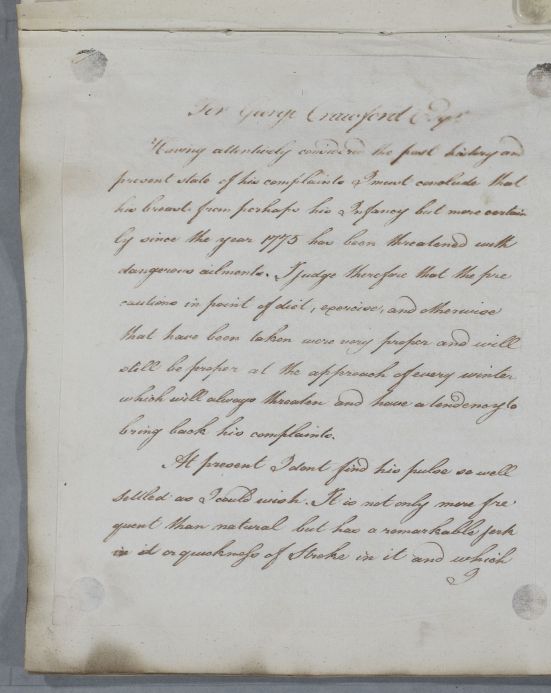 For George Crawford Esqr.
Having attentively considered the past history and
present state of his complaints I must conclude that
his breast from perhaps his Infancy but more certain
ly since the year 1775 has been threatened with
dangerous ailments. I judge therefore that the pre
cautions in point of diet, exercise, and otherwise
that have been taken were very proper and will
still be proper at the approach of every winter
which will always threaten and have a tendency to
bring back his complaints.
At present I dont find his pulse so well
settled as I could wish. It is not only more fre
quent than natural but has a remarkable jerk
in it or quickness of Stroke in it and which
I